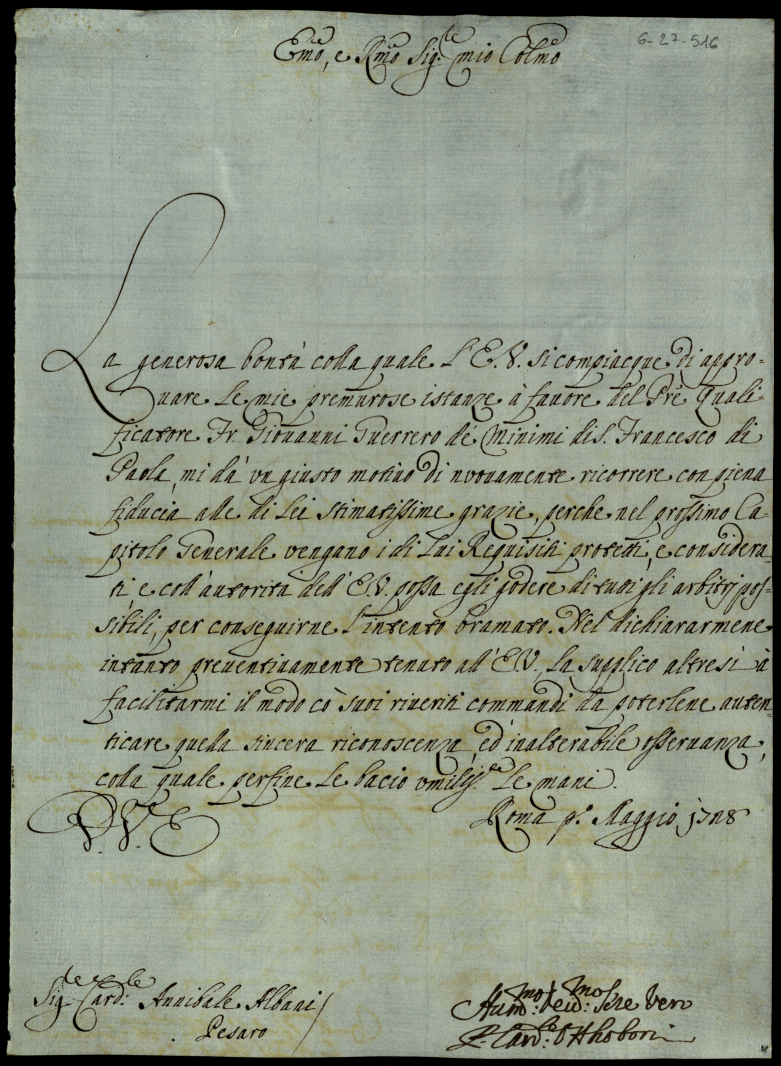 6-27-516
Emo, e Rmo Sig.re mio Colmo
La generosa bontà colla quale L'E.V. si compiacque di appro-
uare le mie premurose istanze à fauore del Prè Quali-
ficatore Fr. Giouanni Guerrero de Minimi di S. Francesco di
Paola, mi dà vn giusto motiuo di nuouamente ricorrere con piena
fiducia alle di Lei stimatissime grazie, perche nel prossimo Ca-
pitolo Generale vengano i di Lui Requisiti protetti, e considera-
ti e coll'autorità dell'E.V. possa egli godere di tutti gli arbitrj pos-
sibili, per conseguirne l'intento bramato. Nel dichiararmene
intanto preuentiuamente tenuto all'E.V., La supplico altresì à
facilitarmi il modo co' suoi riueriti commandi da poterlene auten-
ticare quella sincera riconoscenza, ed'inalterabile osseruanza,
colla quale perfine Le bacio vmiliss.te Le mani.
Roma p.o Maggio 1728
V. E
Sig.re Card.le Annibale Albani
Pesaro
Hum.mo Deu.mo Sre Vero
P. Card. Otthoboni